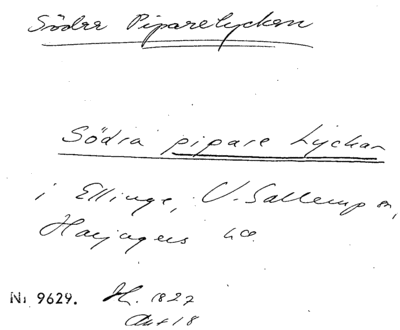 Södra Piparelyckan
Södra pipare Lyckan
i Ellinge, V. Sallerup sn,
Harjagers hd.
No 9629. Sk. 1827
Akt 18